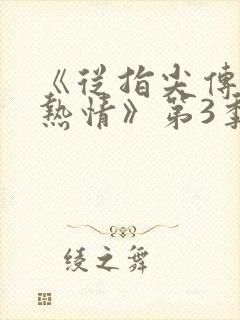 《從指尖傳
熱情》第3季
綾之舞